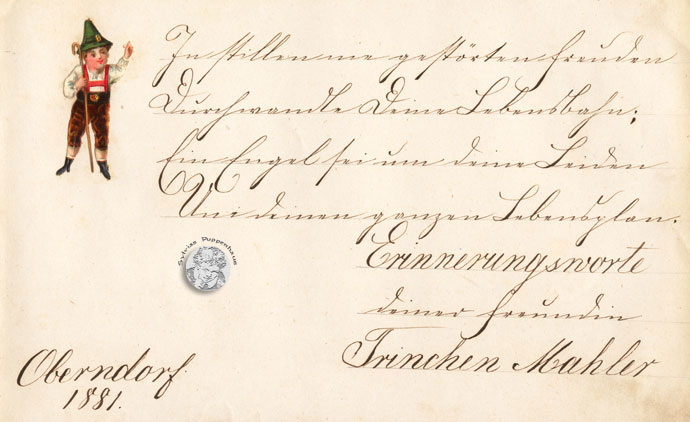 In stillen nie gestörten Freuden
Durchwandle Deine Lebensbahn;
Ein Engel sei um deine Leiden
Um deinen ganzen Lebensplan.
Erinnerungsworte
deiner Freundin
Trinchen Mahler
Oberndorf
1881.
Sylvias Puppenhaus